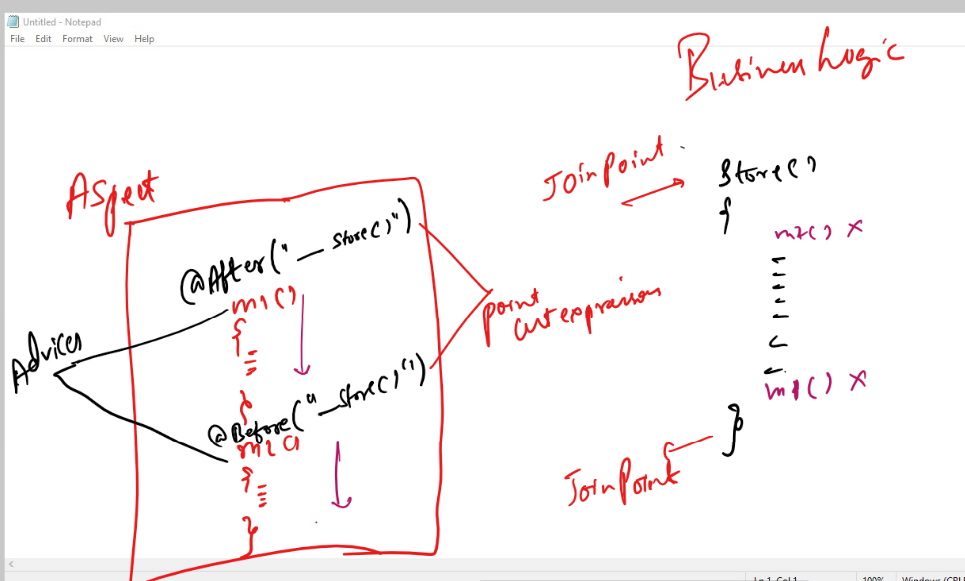 Untitled - Notepad
File Edit Format View Help
Business Logic
Join Point
Store()
{
m2() x
Aspect
@After("— Store()")
m1()
{
}
Advices
point
cut expression
@Before("— Store()")
m2()
{
}
m1() x
}
Join Point
Ln 1, Col 1 100% Windows (CRLF